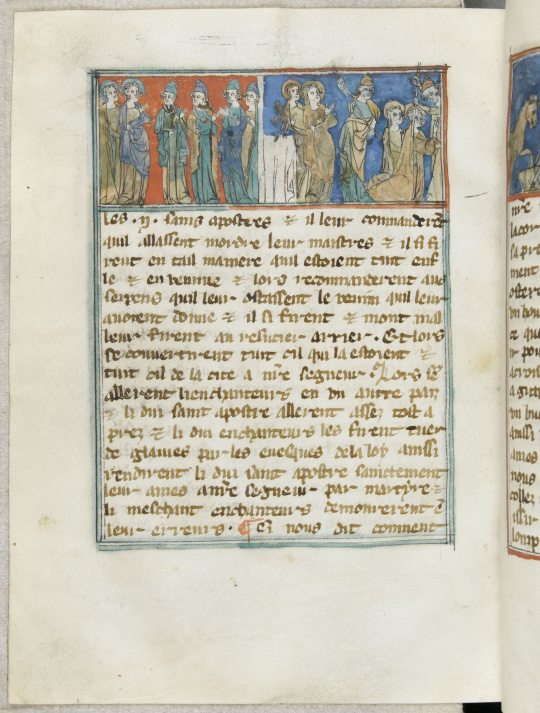 les .ij. sains apostres et il leur commanderent
quil alassent mordre leur maistres et il si fi
rent en tail maniere quil estoient tuit enf
le et en venime et lors recommanderent aus
serpens quil leur ostassent le venim quil leur
avoient done et il si firent et mont mal
leur firent au resucier arrier. Et lors
se convertirent tuit cil qui la estoient et
tuit cil de la cite a nre segneur. Lors sen
allerent li enchanteurs en un autre pais
et li dui saint apostre allerent assez tost a
pres et li dui enchanteurs les firent tuer
de glaives par les evesques de la loy ainssi
rendirent li dui saint apostre sainctement
leur ames a nre segneur par martyre et
li meschant enchanteurs demorerent en
leur erreurs. Ci nous dit comment
nre
la cor
sa pre
ment
amssi
ames
nous